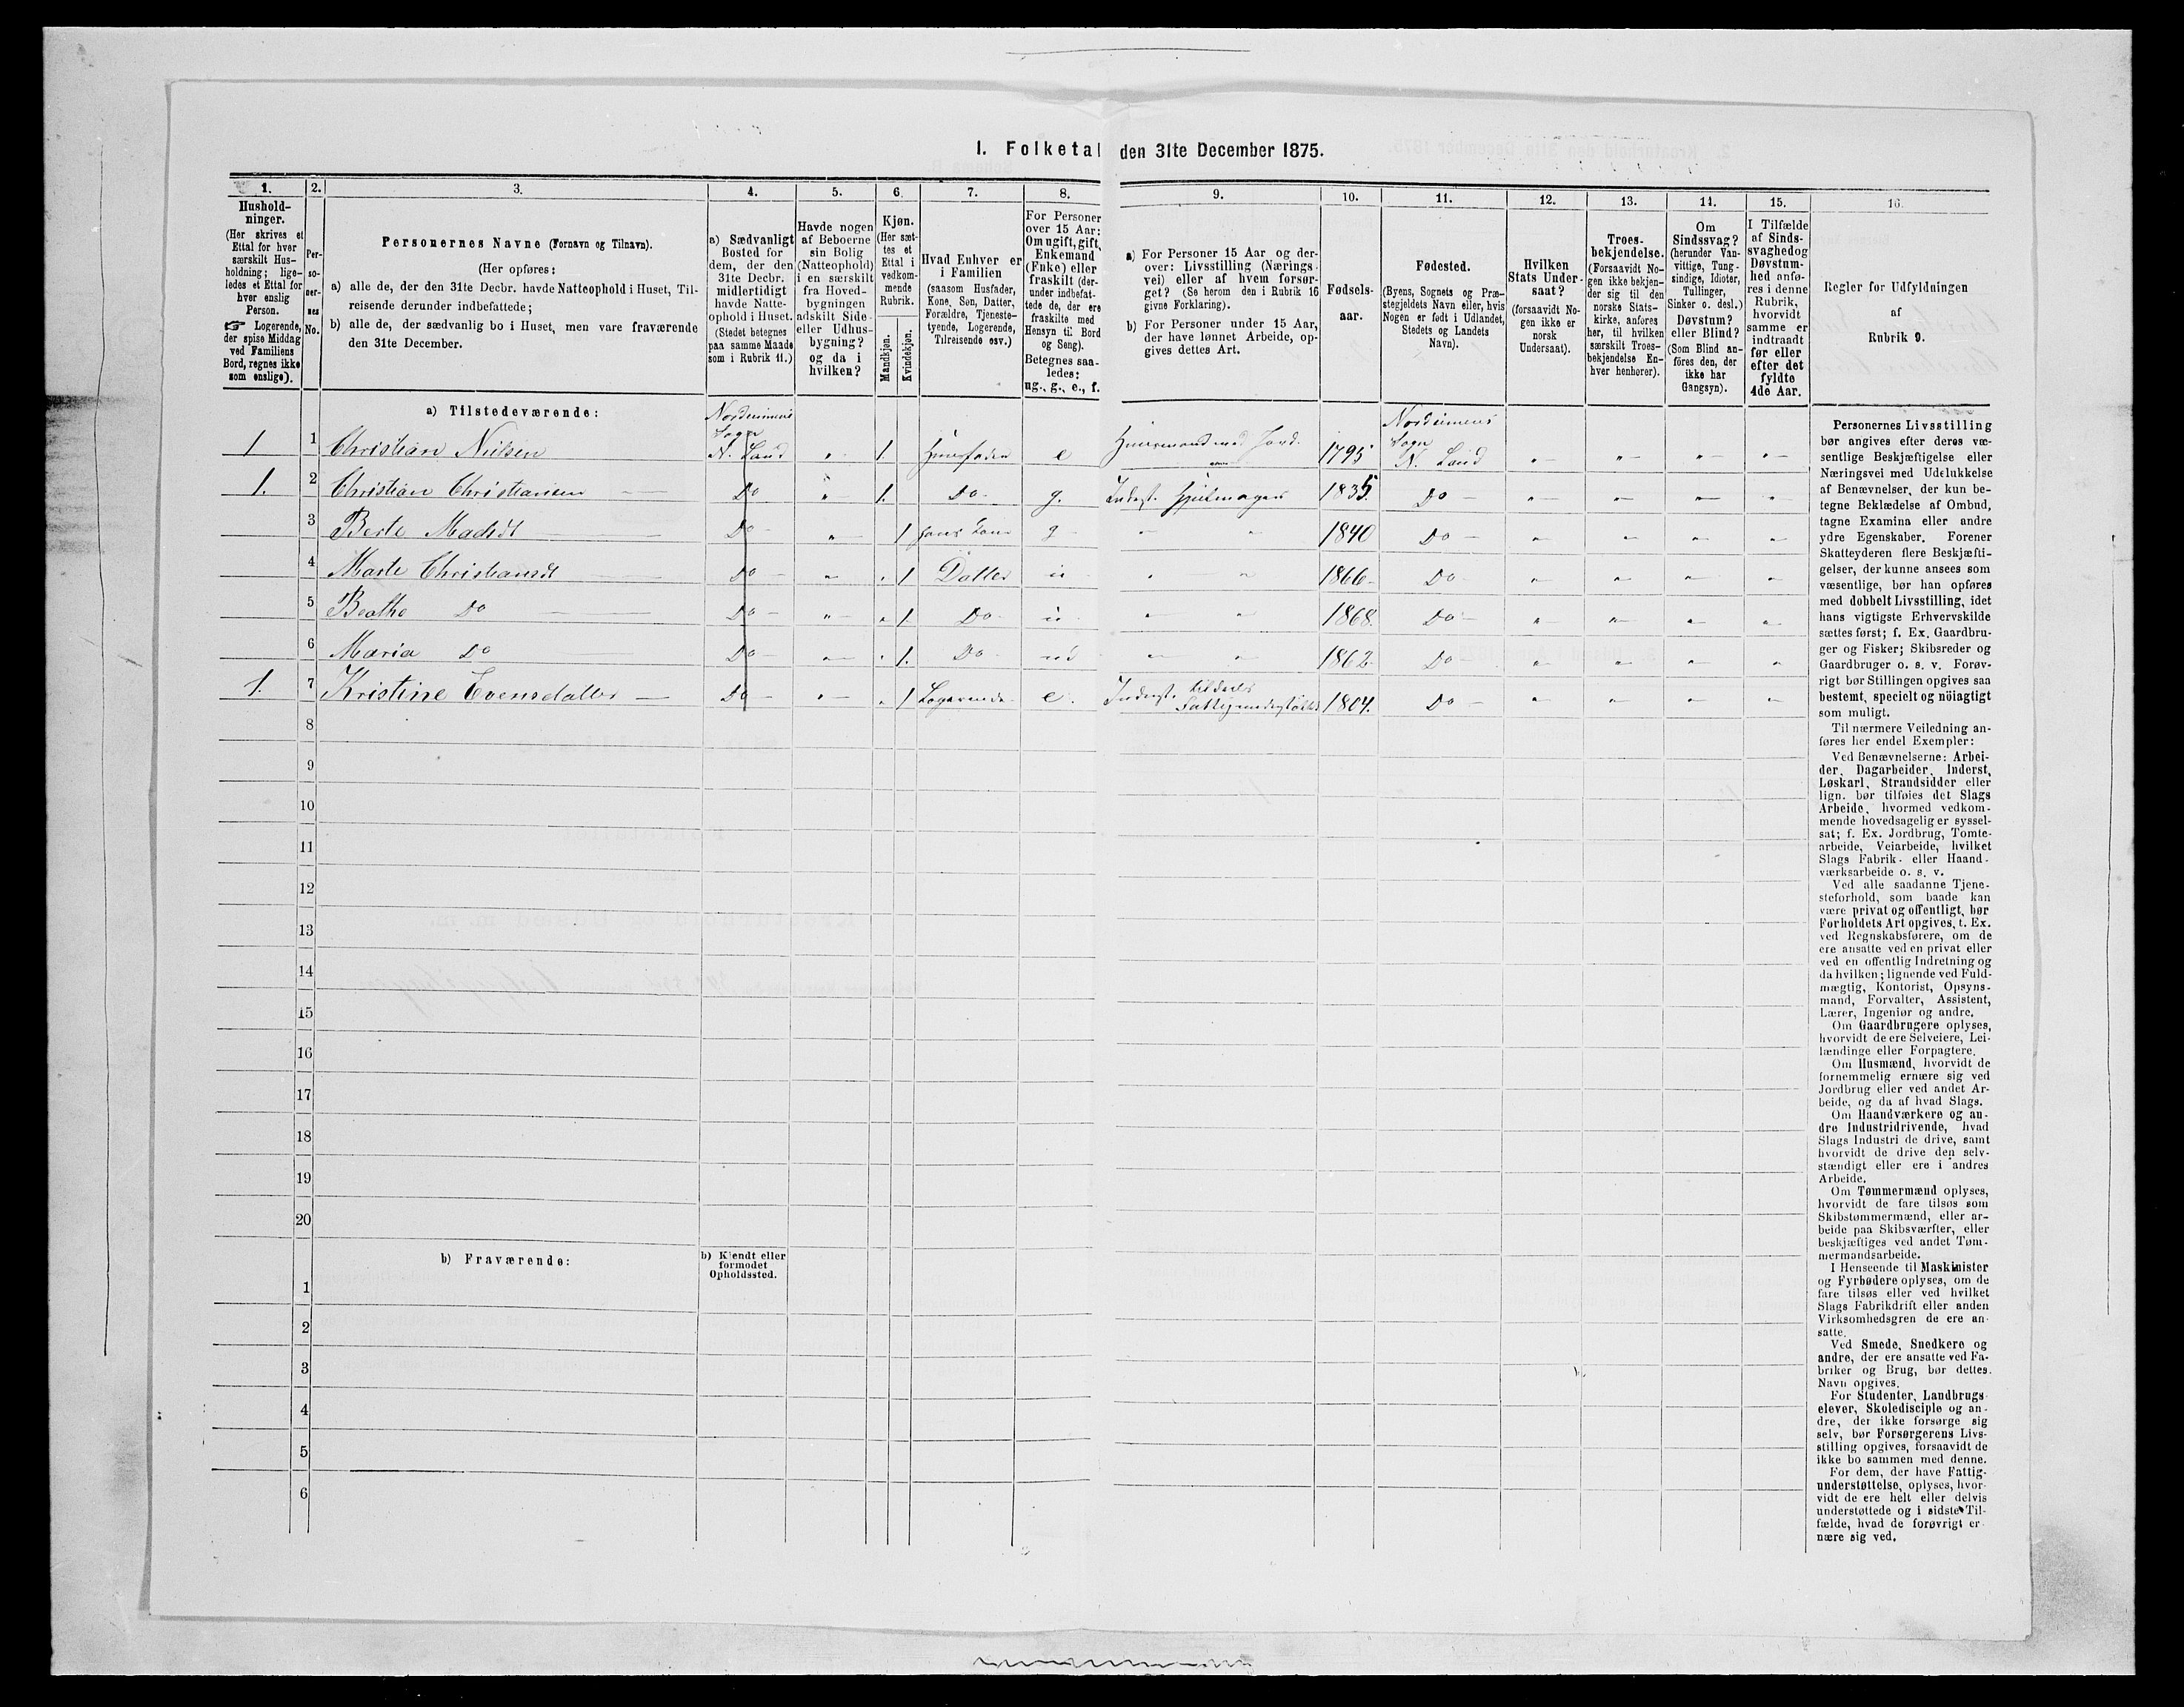 I. Folketal den 31te December 1875.
1.
2.
3.
4.
5.
6.
7.
8.
9.
10.
11.
12.
13.
14.
15.
16.
Hushold-
ninger.
(Her skrives et
Ettal for hver
særskilt Hus-
holdning; lige-
ledes et Ettal for
hver enslig
Person.
☞ Logerende,
der spise Middag
ved Familiens
Bord, regnes ikke
som enslige).
Per-
so-
ner-
nes
No.
Personernes Navne (Fornavn og Tilnavn).
(Her opføres:
a) alle de, der den 31te Decbr. havde Natteophold i Huset, Til-
reisende derunder indbefattede;
b) alle de, der sædvanlig bo i Huset, men vare fraværende
den 31te December.
a) Sædvanligt
Bosted for
dem, der den
31te Decbr.
midlertidigt
havde Natte-
ophold i Huset.
(Stedet betegnes
paa samme Maade
som i Rubrik 11.)
Havde nogen
af Beboerne
sin Bolig
(Natteophold)
i en særskilt
fra Hoved-
bygningen
adskilt Side-
eller Udhus-
bygning?
og da i
hvilken?
Kjøn.
(Her sæt-
tes et
Ettal i
vedkom-
mende
Rubrik.
Mandkjøn.
Kvindekjøn.
Hvad Enhver er
i Familien
(saasom Husfader,
Kone, Søn, Datter,
Forældre, Tjeneste-
tyende, Logerende,
Tilreisende osv.)
For Personer
over 15 Aar:
Om ugift, gift,
Enkemand
(Enke) eller
fraskilt (der-
under indbefat-
tede de, der ere
fraskilte med
Hensyn til Bord
og Seng).
Betegnes saa-
ledes:
ug., g., e., f.
a) For Personer 15 Aar og der-
over: Livsstilling (Nærings-
vei) eller af hvem forsør-
get? (Se herom den i Rubrik 16
givne Forklaring).
b) For Personer under 15 Aar,
der have lønnet Arbeide, op-
gives dettes Art.
Fødsels-
aar.
Fødested.
(Byens, Sognets og Præ-
stegjeldets Navn eller, hvis
Nogen er født i Udlandet,
Stedets og Landets
Navn).
Hvilken
Stats Under-
saat?
(forsaavidt No-
gen ikke er
norsk
Undersaat).
Troes-
bekjendelse.
(Forsaavidt No-
gen ikke bekjen-
der sig til den
norske Stats-
kirke, anføres
her, til hvilken
særskilt Troes-
bekjendelse En-
hver henhører).
Om
Sindssvag?
(herunder Van-
vittige, Tung-
sindige, Idioter,
Tullinger,
Sinker o. desl.)
Døvstum?
eller Blind?
(Som Blind an-
føres den, der
ikke har
Gangsyn).
I Tilfælde
af Sinds-
svaghed og
Døvstum-
hed anfø-
res i denne
Rubrik,
hvorvidt
samme er
indtraadt
før eller
efter det
fyldte
4de Aar.
Regler for Udfyldningen
af
Rubrik 9.
a) Tilstedeværende:
1 1 Christian Nielsen Sogn N. Land „ 1. e 1795 Sogn N. Land „ „ „ „
1. 2 Christian Christiansen Do „ 1. Do g. Inderst. Hjulmager 1835. Do „ „ „ „
3 Berte Madsdt Do „ 1 g „ „ 1840 Do „ „ „ „
4 Marte Christiansdt Do „ „ 1 Datter u „ „ 1866 Do „ „ „ „
5 Beathe Do Do „ „ 1 Do u „ „ 1868. Do „ „ „ „
6 Maria Do Do „ „ 1. Do „ „ 1862 Do „ „ „ „
1. 7 Kristine Evensdatter Do „ „ 1 Logerende e. Inderst. tildels Fattigunderstøttet 1804. Do „ „ „ „
8
9
10
11
12
13
14
15
16
17
18
19
20
b) Fraværende:
b) Kjendt eller
formodet
Opholdssted.
1
2
3
4
5
6
Personernes Livsstilling
bør angives efter deres væ-
sentlige Beskjæftigelse eller
Næringsvei med Udelukkelse
af Benævnelser, der kun be-
tegne Beklædelse af Ombud,
tagne Examina eller andre
ydre Egenskaber. Forener
Skatteyderen flere Beskjæfti-
gelser, der kunne ansees som
væsentlige, bør han opføres
med dobbelt Livsstilling, idet
hans vigtigste Erhvervskilde
sættes først; f. Ex. Gaardbru-
ger og Fisker; Skibsreder og
Gaardbruger o. s. v. Forøv-
rigt bør Stillingen opgives saa
bestemt, specielt og nöiagtigt
som muligt.
Til nærmere Veiledning an-
føres her endel Exempler:
Ved Benævnelserne: Arbei-
der, Dagarbeider, Inderst,
Løskarl, Strandsidder eller
lign. bør tilføies det Slags
Arbeide, hvormed vedkom-
mende hovedsagelig er syssel-
sat; f. Ex. Jordbrug, Tomte-
arbeide, Veiarbeide, hvilket
Slags Fabrik- eller Haand-
værksarbeide o. s. v.
Ved alle saadanne Tjene-
steforhold, som baade kan
være privat og offentligt, bør
Forholdets Art opgives, t. Ex.
ved Regnskabsførere, om de
ere ansatte ved en privat eller
ved en offentlig Indretning og
da hvilken; lignende ved Fuld-
mægtig, Kontorist, Opsyns-
mand, Forvalter, Assistent,
Lærer, Ingeniør og andre.
Om Gaardbrugere oplyses,
hvorvidt de ere Selveiere, Lei-
lændinge eller Forpagtere.
Om Husmænd, hvorvidt de
fornemmelig ernære sig ved
Jordbrug eller ved andet Ar-
beide, og da af hvad Slags.
Om Haandværkere og an-
dre Industridrivende, hvad
Slags Industri de drive, samt
hvorvidt de drive den selv-
stændigt eller ere i andres
Arbeide.
Om Tømmermænd oplyses,
hvorvidt de fare tilsøs som
Skibstømmermænd, eller ar-
beide paa Skibsværfter, eller
beskjæftiges ved andet Tøm-
mermandsarbeide.
I Henseende til Maskinister
og Fyrbødere oplyses, om de
fare tilsøs eller ved hvilket
Slags Fabrikdrift eller anden
Virksomhedsgren de ere an-
satte.
Ved Smede, Snedkere og
andre, der ere ansatte ved Fa-
briker og Brug, bør dettes
Navn opgives.
For Studenter, Landbrugs-
elever, Skoledisciple og an-
dre, der ikke forsørge sig
selv, bør Forsørgerens Livs-
stilling opgives, forsaavidt de
ikke bo sammen med denne.
For dem, der have Fattig-
understøttelse, oplyses, hvor-
vidt de ere helt eller delvis
understøttede og i sidste Til-
fælde, hvad de forøvrigt er-
nære sig ved.